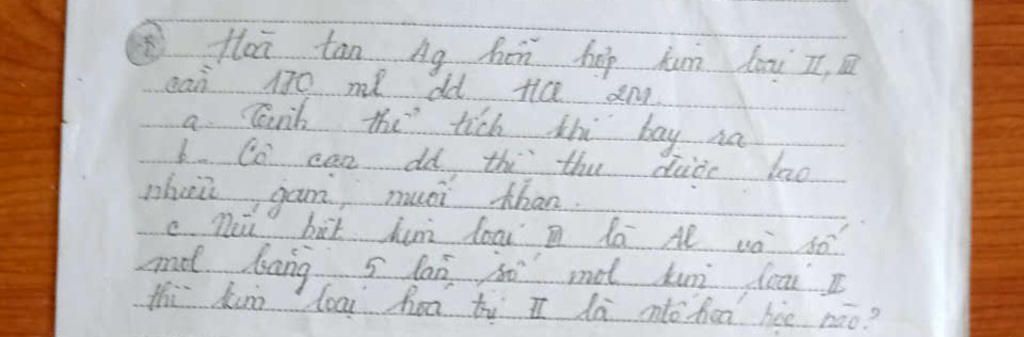 Hoà tan 4g hỗn hợp kim loại II, III
cần 170 ml dd HCl 2M.
a. Tính thể tích khí bay ra
b. Cô cạn dd, thì thu được bao
nhiêu gam muối khan.
c. Nếu biết kim loại III là Al và số
mol bằng 5 lần số mol kim loại II
thì kim loại hoá trị II là ntố hoá học nào?